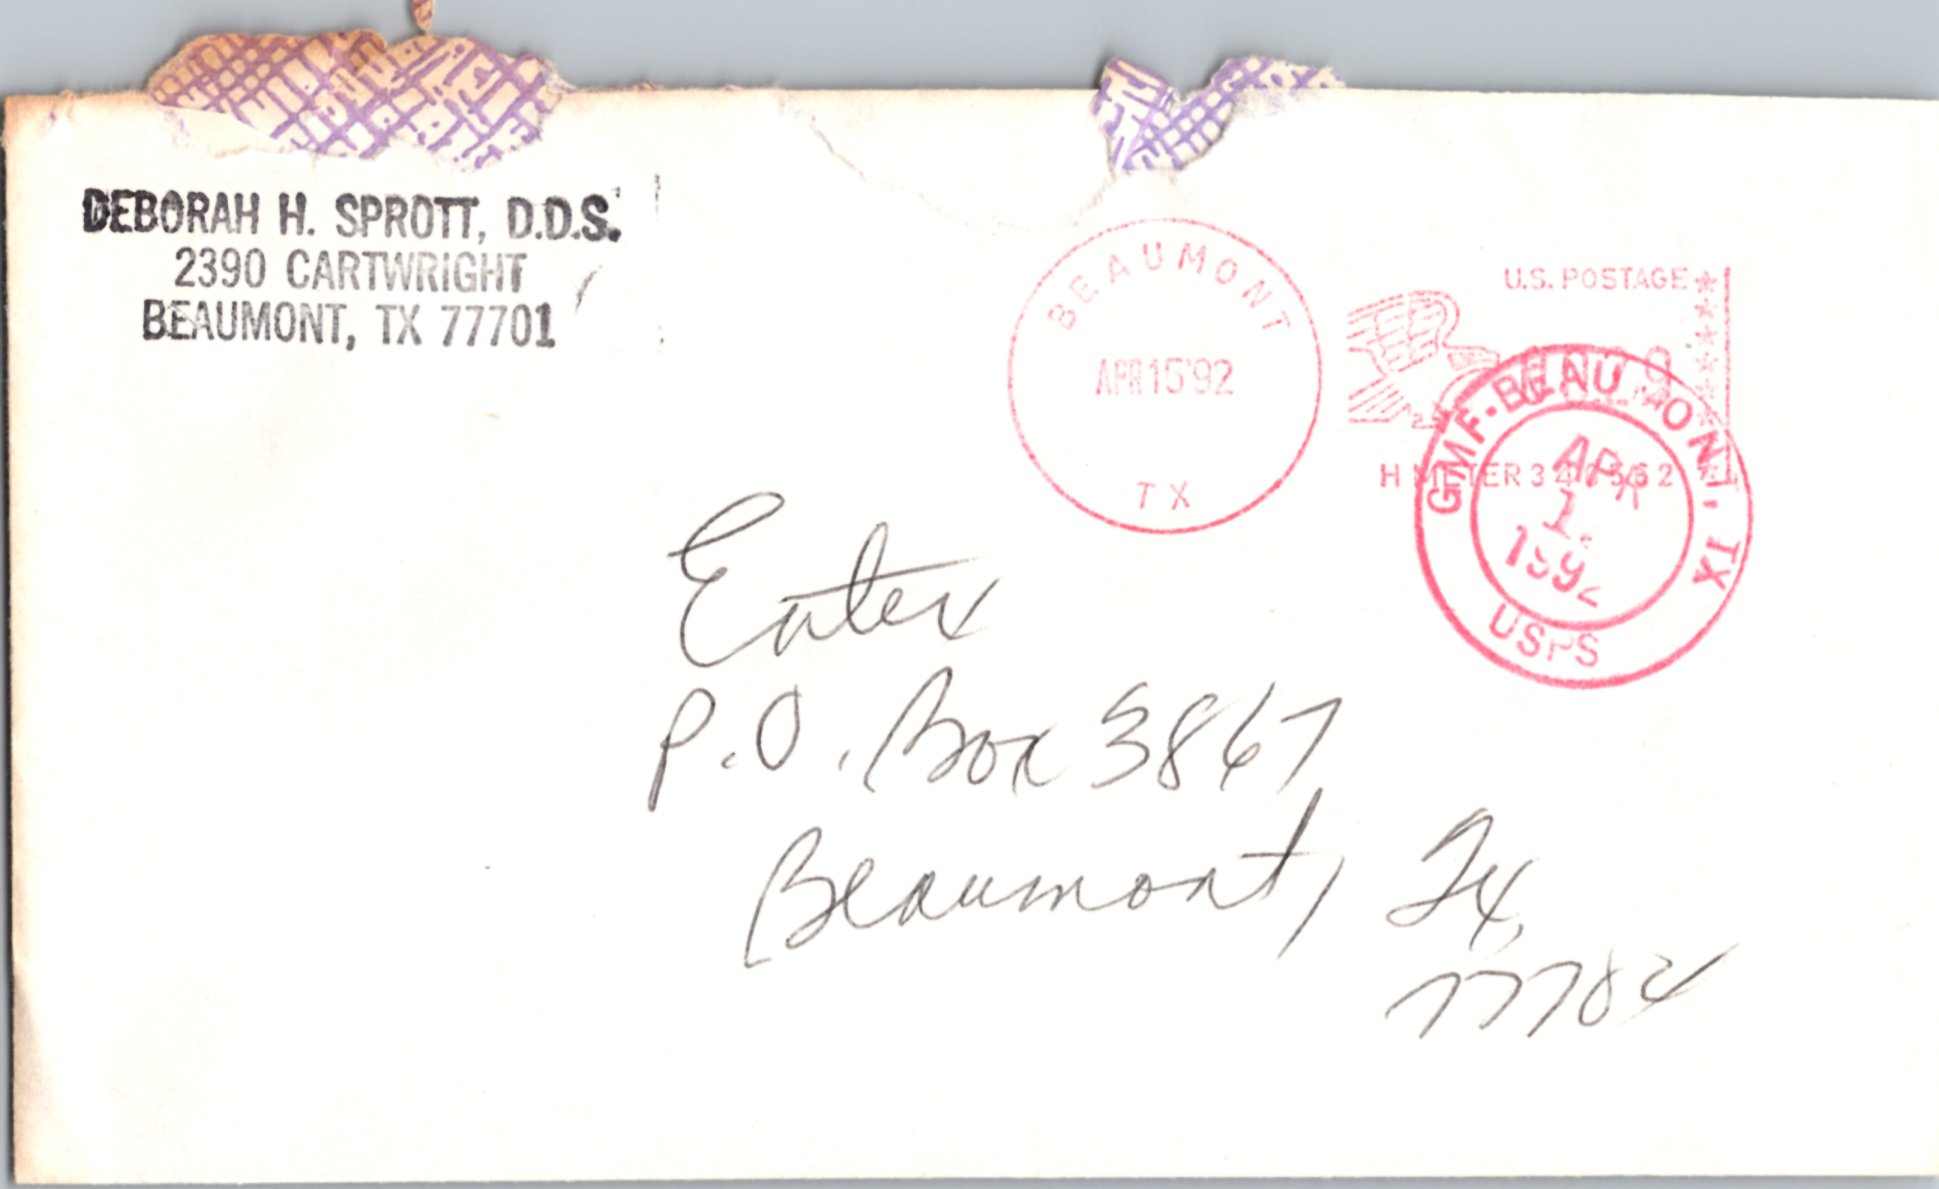 DEBORAH H. SPROTT, D.D.S.
2390 CARTWRIGHT
BEAUMONT, TX 77701
BEAUMONT
APR 15 '92
TX
U.S. POSTAGE
H METER
GMF-BEAUMONT, TX
APR
1992
USPS
Entex
P.O. Box 3867
Beaumont, Tx.
77704